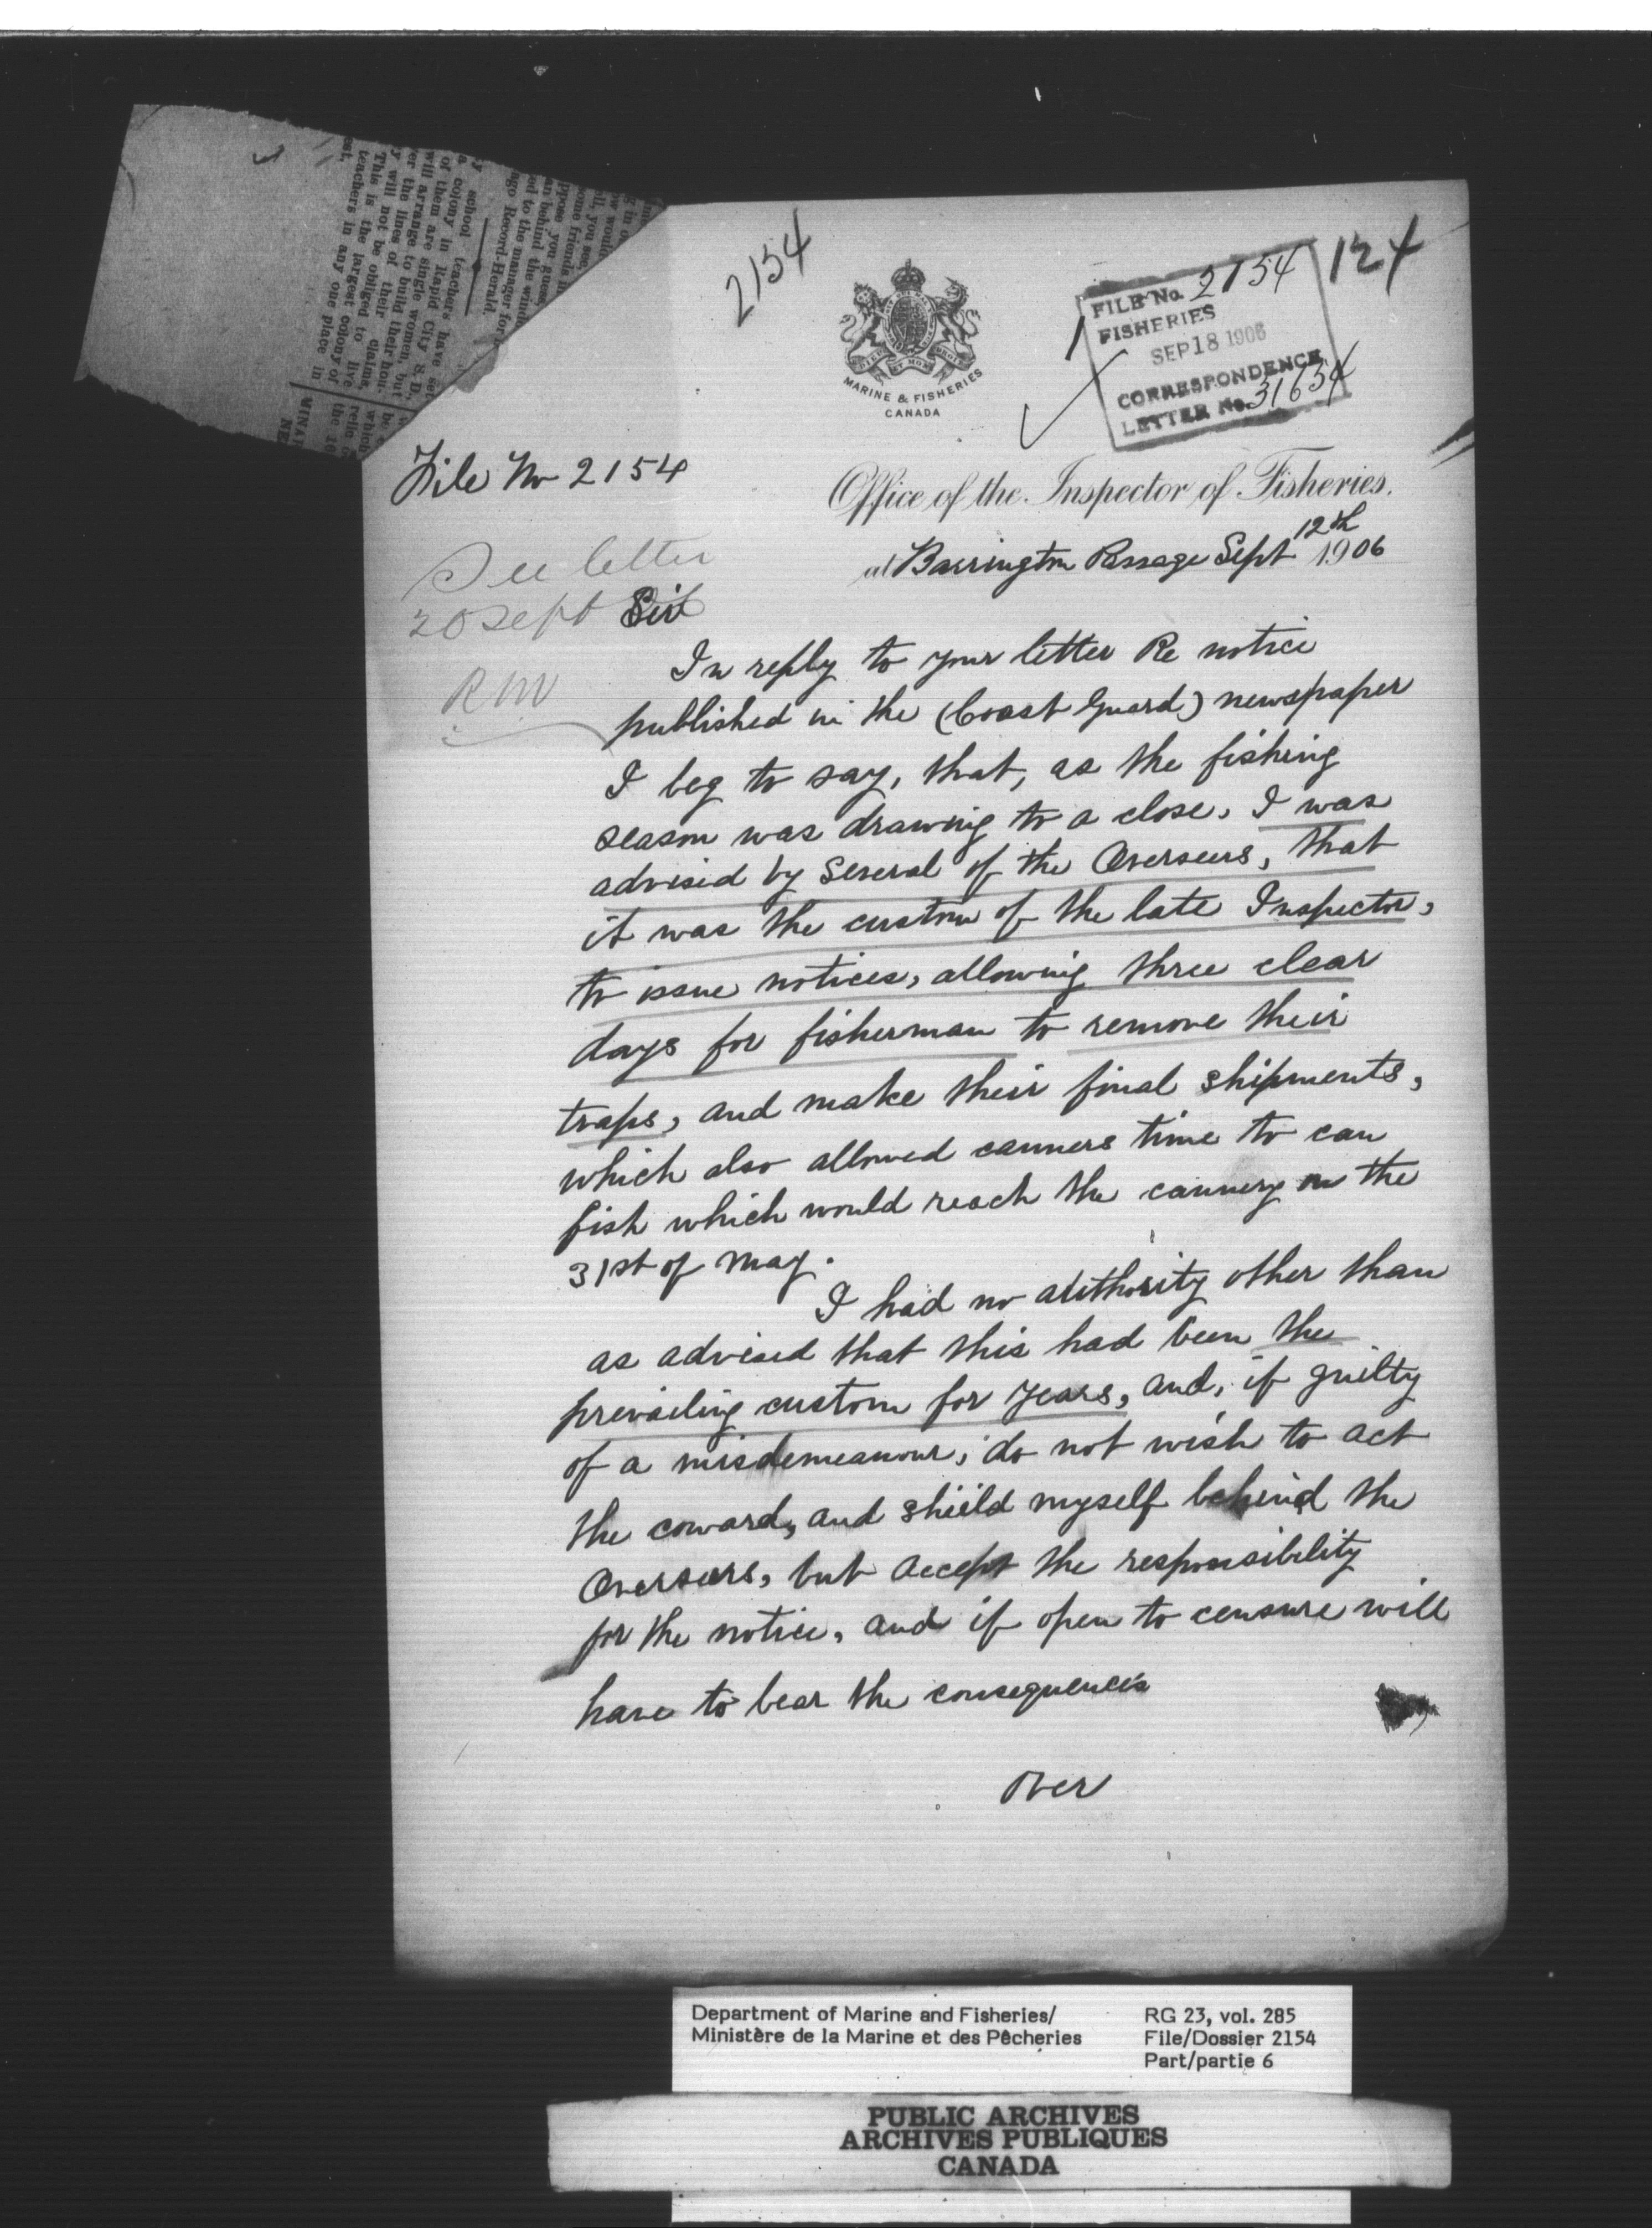 2154
124
FILE No. 2154
FISHERIES
SEP 18 1906
CORRESPONDENCE
LETTER No. 31634
DIEU ET MON DROIT
MARINE & FISHERIES
CANADA
y school teachers have
a colony in Rapid City S. D.,
of them are single women, but
will arrange to build their hou-
er the lines of their claims,
y will not be obliged to live
This is the largest colony of
teachers in any one place in
ago Record-Herald.
File No 2154
Office of the Inspector of Fisheries.
at Barrington Passage Sept 12th 1906
See letter
20 Sept
RM
Sir
In reply to your letter Re notice
published in the (Coast Guard) newspaper
I beg to say, that, as the fishing
season was drawing to a close, I was
advised by several of the Overseers, that
it was the custom of the late Inspector,
to issue notices, allowing three clear
days for fisherman to remove their
traps, and make their final shipments,
which also allowed canners time to can
fish which would reach the cannery on the
31st of May.
I had no authority other than
as advised that this had been the
prevailing custom for years, and, if guilty
of a misdemeanour, do not wish to act
the coward, and shield myself behind the
Overseers, but accept the responsibility
for the notice, and if open to censure will
have to bear the consequences
over
Department of Marine and Fisheries/
Ministère de la Marine et des Pêcheries
RG 23, vol. 285
File/Dossier 2154
Part/partie 6
PUBLIC ARCHIVES
ARCHIVES PUBLIQUES
CANADA